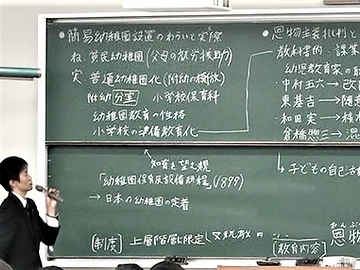 ・簡易幼稚園設置のねらいと実際
ね. 貧民幼稚園(父母の就労援助)
実. 普通幼稚園化(附幼の模放)
附幼 分室 小学校保育科
幼稚園教育の性格
小学校の準備教育化
知育も望む親
「幼稚園保育及設備規程」(1899)
→日本の幼稚園の定着
[制度] 上層階層に限定し
・恩物主義批判と
教科書的・課業
幼児教育家の
・中村五六→改
・東基吉→
・和田実→
・倉橋惣三→混
→子どもの自己活
恩物
[教育内容]